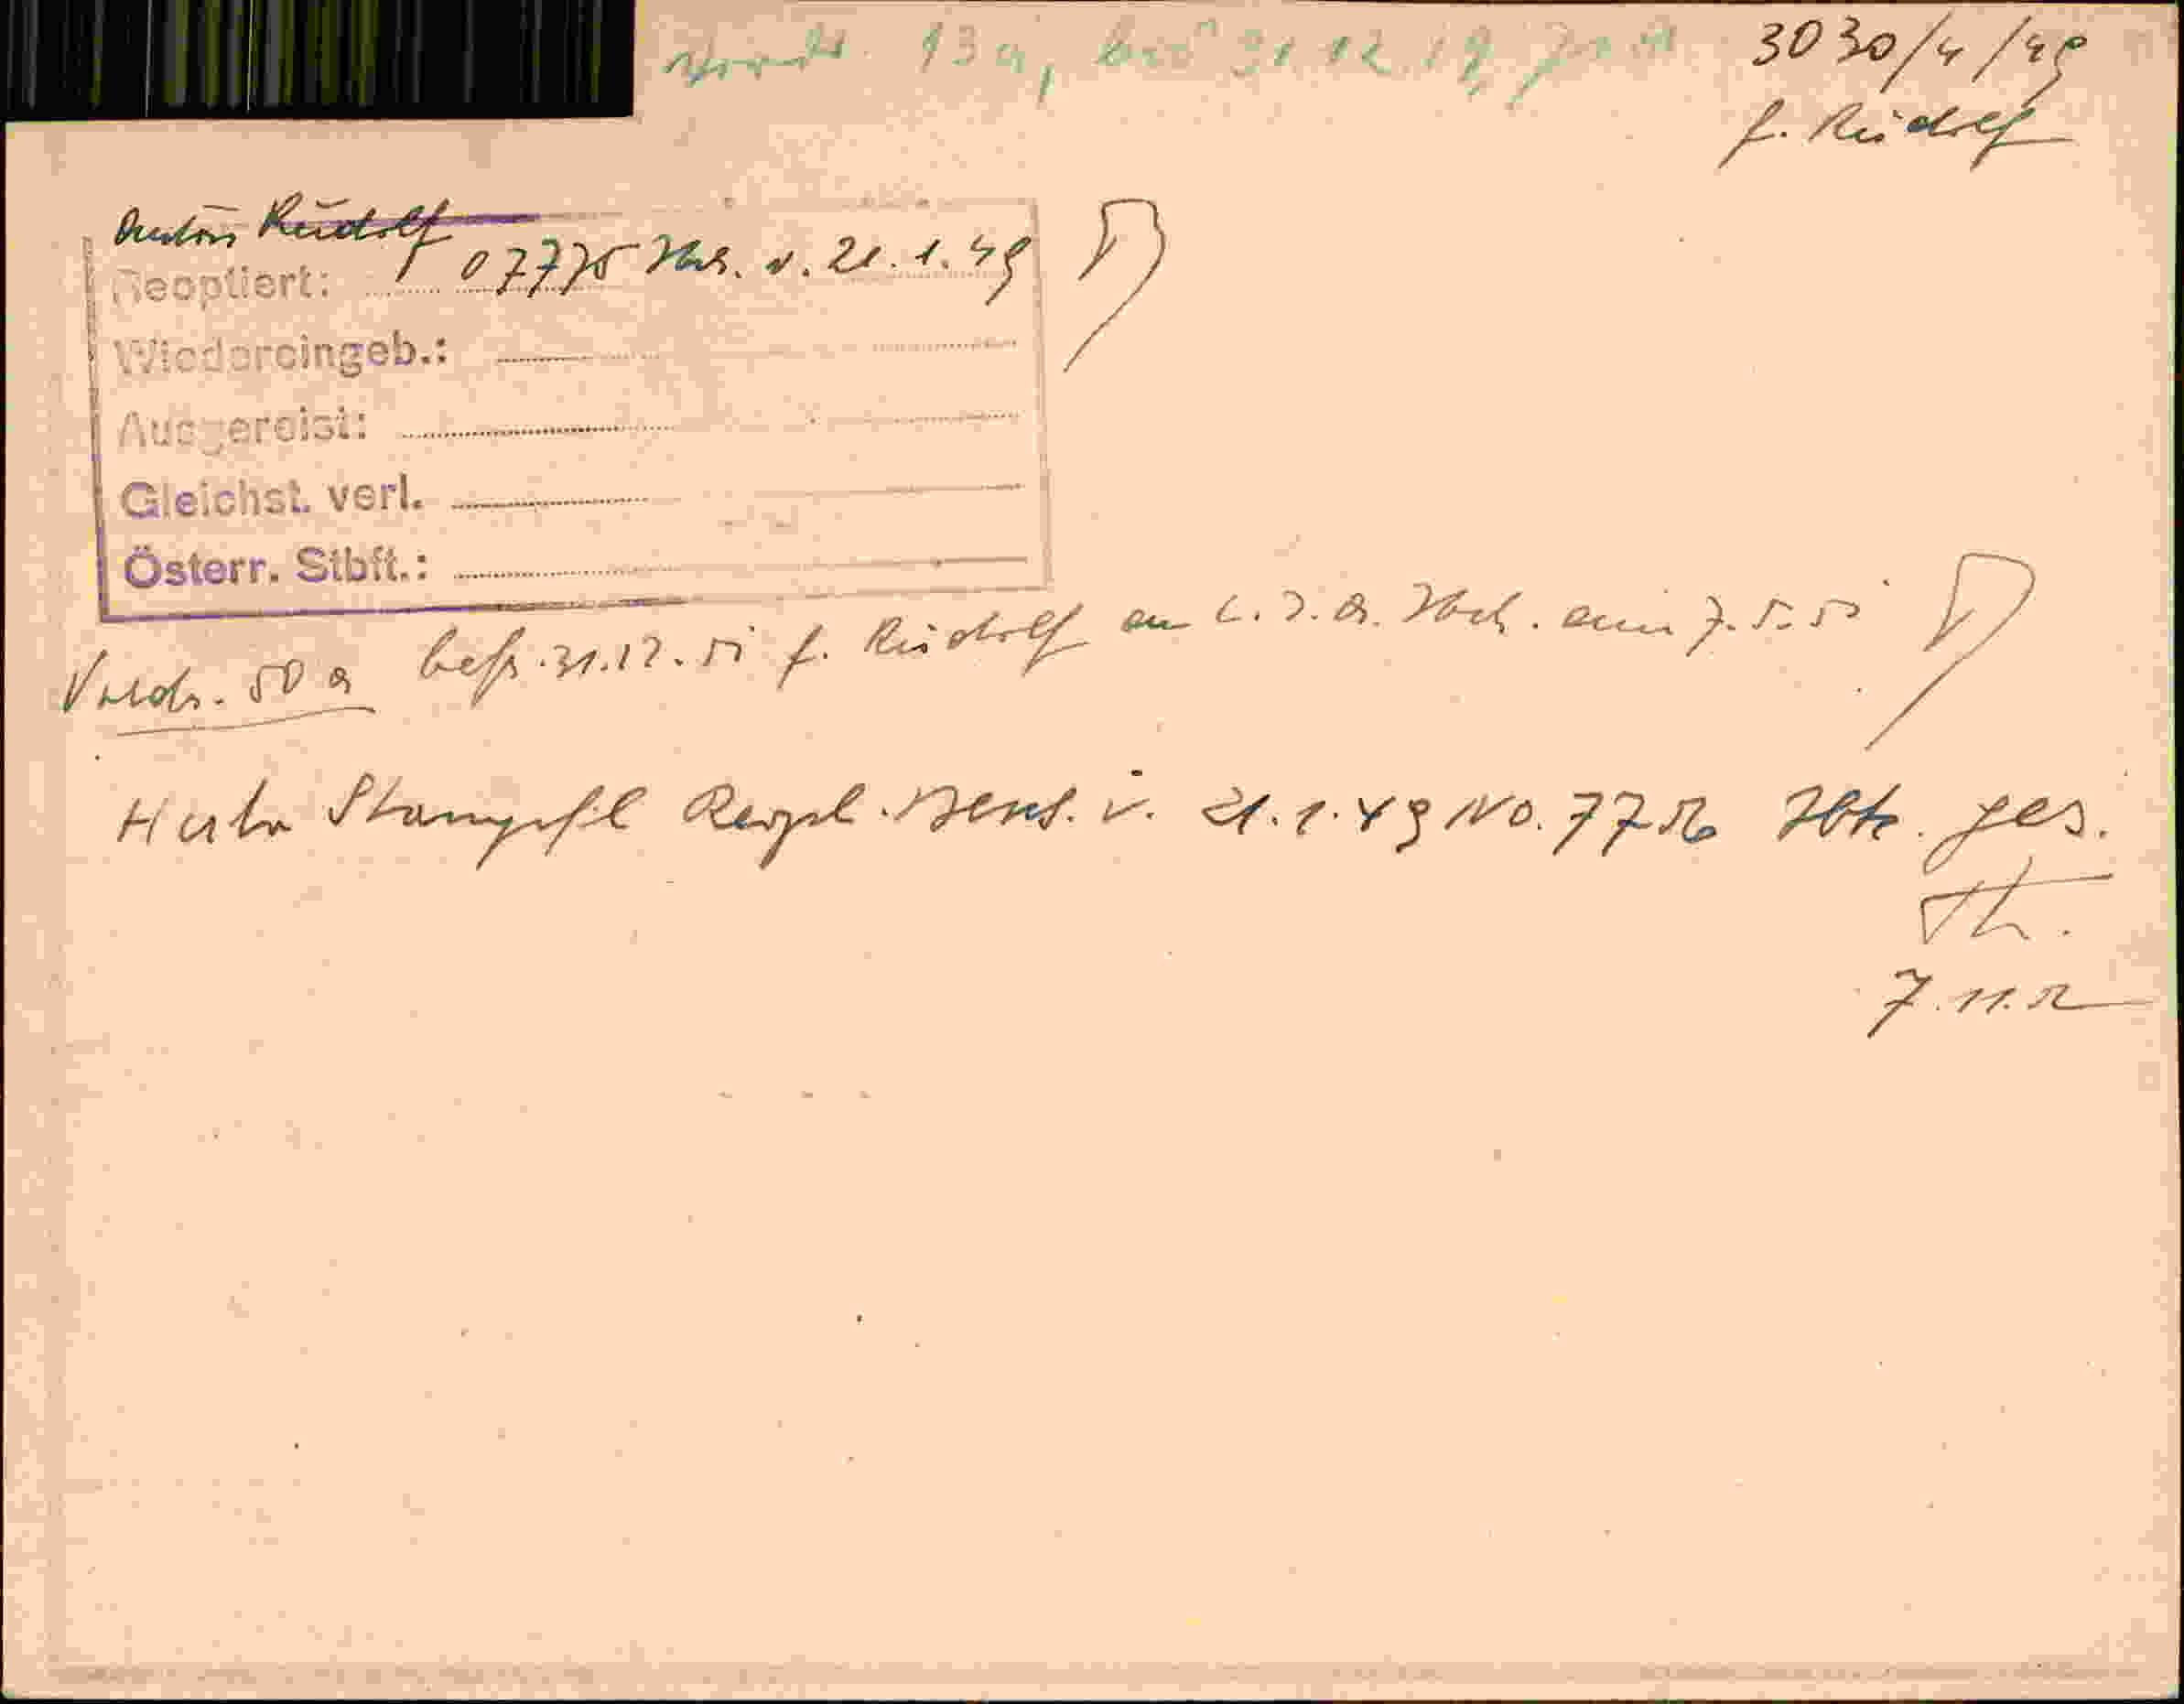 13a, bis 31.12.19
3030/4/49
f. Rudolf
Anton Rudolf
Reoptiert: 07775 v. 21.1.49
Wiedereingeb.:
Ausgereist:
Gleichst. verl.
Österr. Stbft.:
Vordr. 50 a befr. 31.12.51 f. Rudolf an am 7.5.51
Herta Stampfl v. 21.1.49 No. ges.
7.11.52